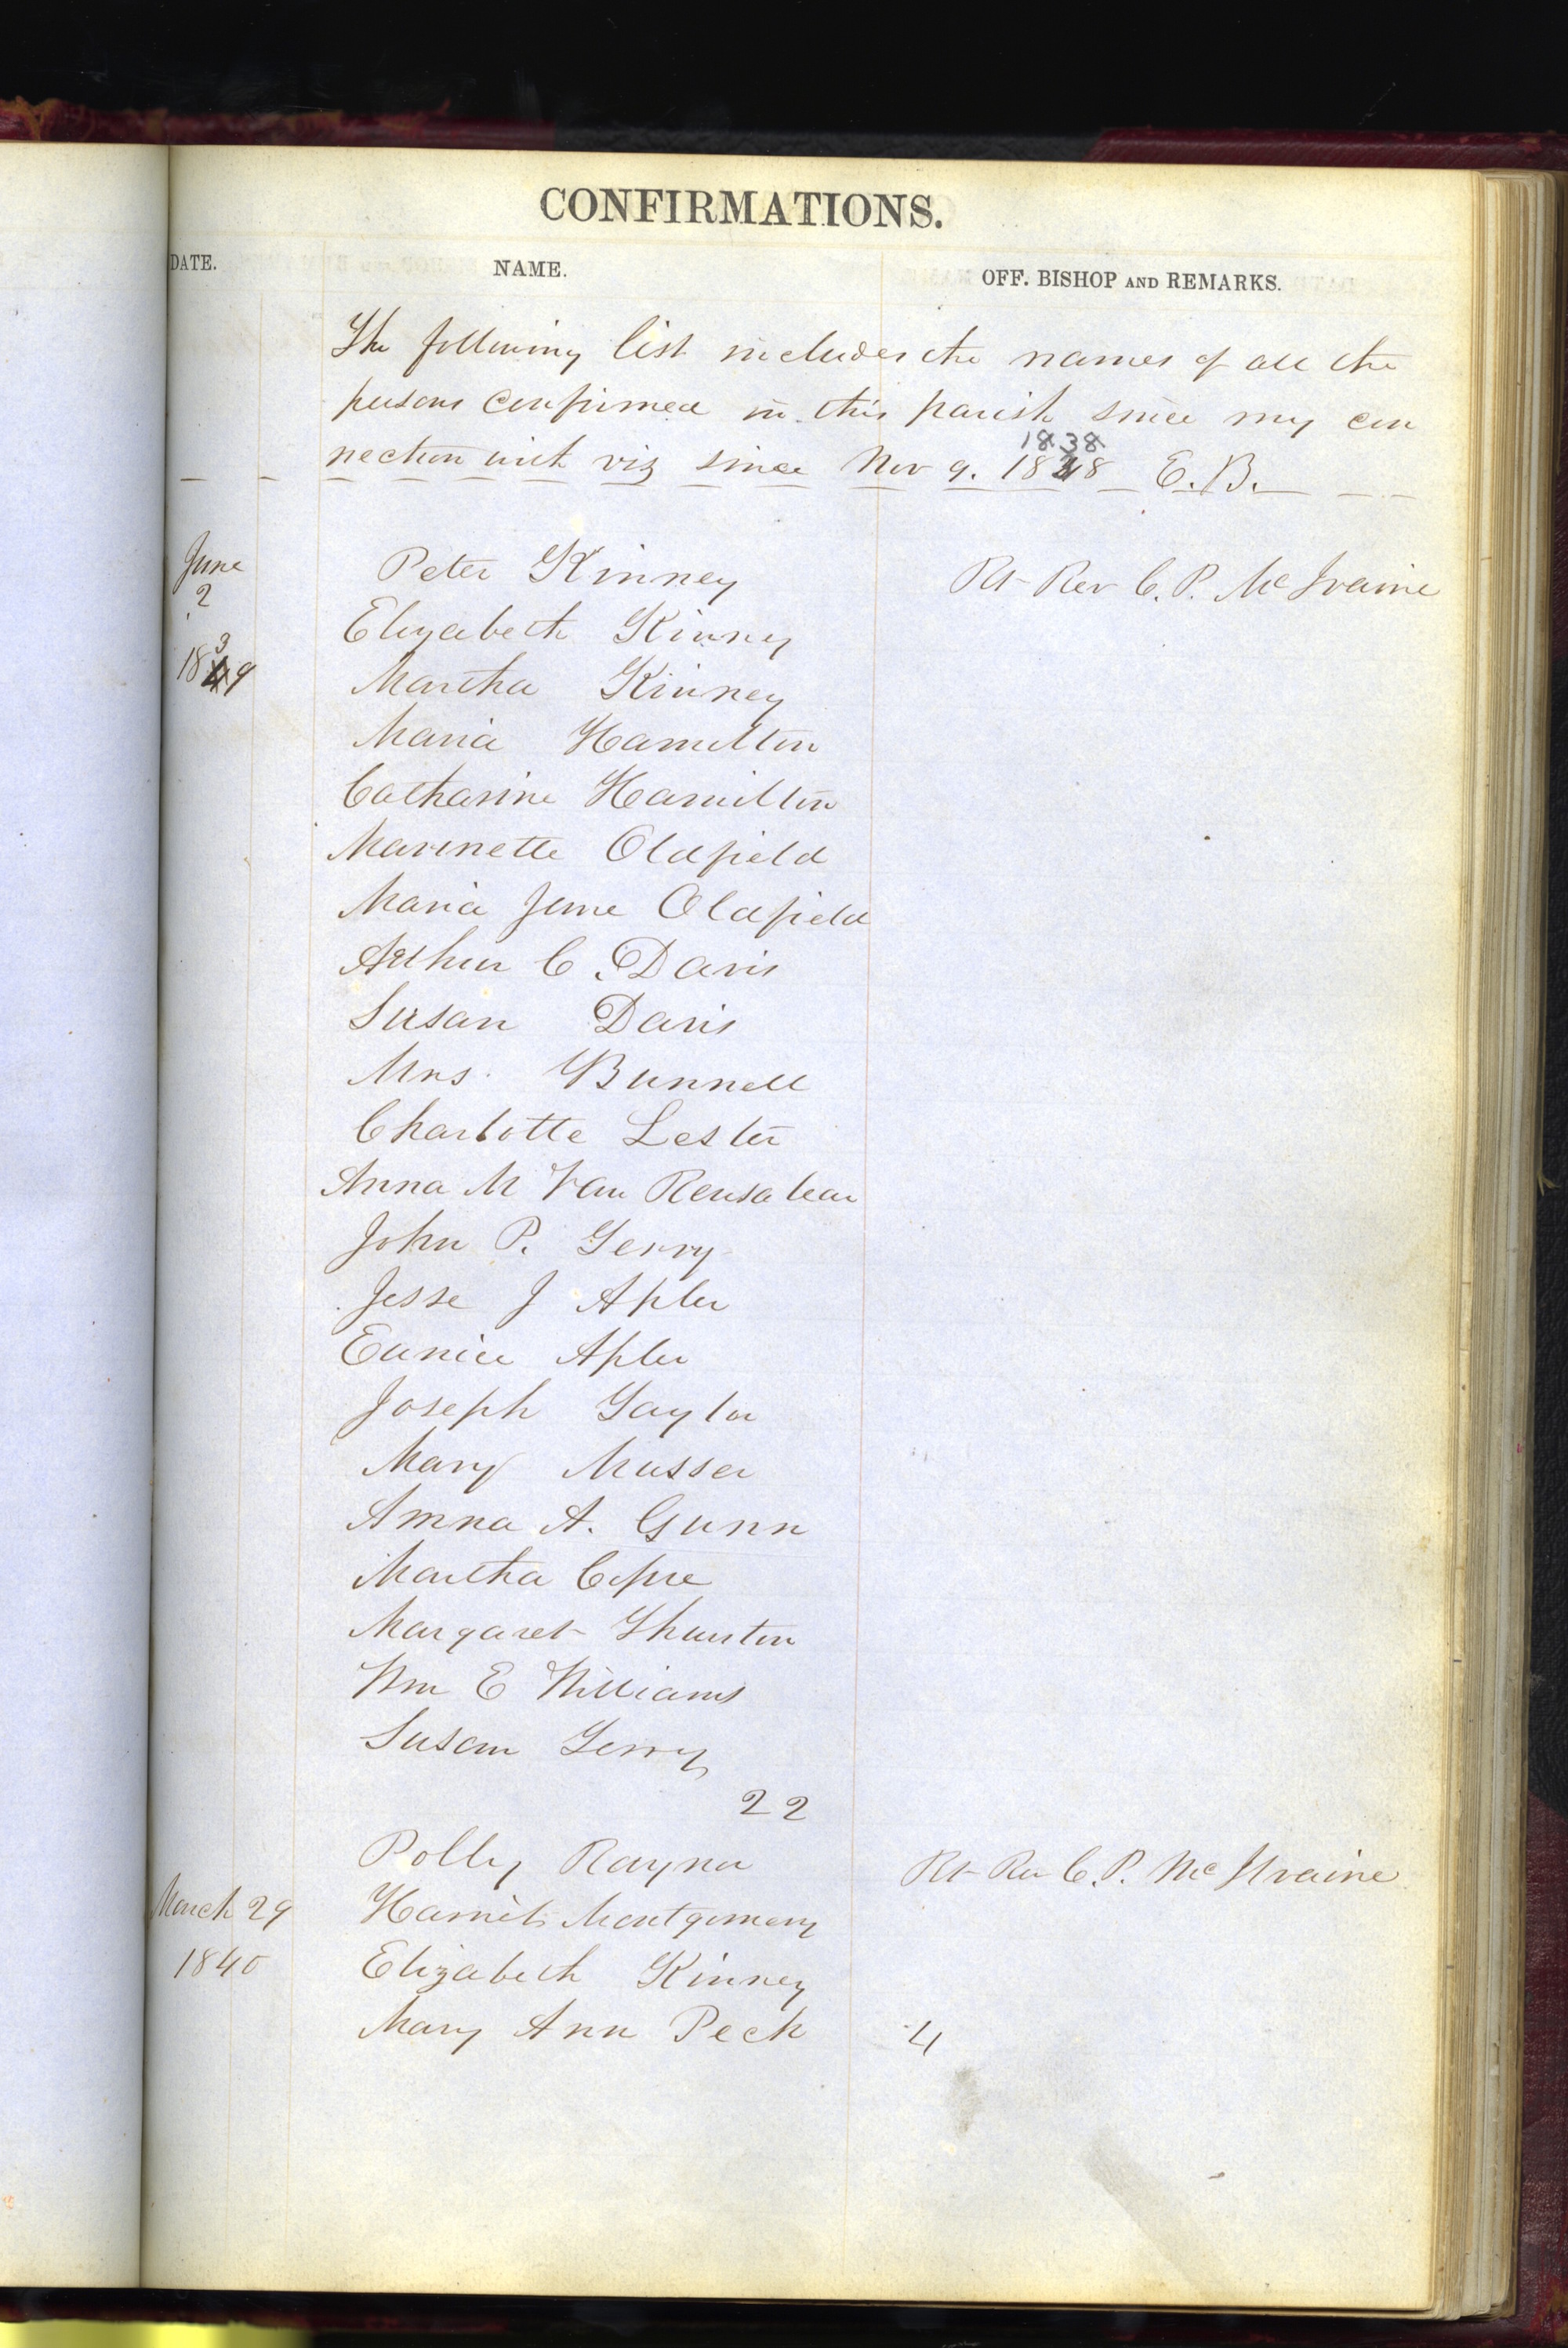 CONFIRMATIONS.
DATE. NAME. OFF. BISHOP AND REMARKS.
The following list includes the names of all the
persons confirmed in this parish since my con
nection with viz since Nov 9. 1848 E. B.
1838
June Peter Kinney Rt Rev C. P. McIvaine
2 Elizabeth Kinney
3
1849 Martha Kinney
Maria Hamilton
Catharine Hamilton
Marinette Oldfield
Maria Jane Oldfield
Arthur C. Davis
Susan Davis
Mrs. Bunnell
Charlotte Lester
Anna M Van Rensalear
John P. Terry
Jesse J Apler
Eunice Apler
Joseph Gaylor
Mary Musser
Amna A. Gunn
Martha
Margaret Thurston
Wm E Williams
Susan Terry
22
Polly Raynor Rt Rev C. P. McIlvaine
March 29 Harriet Montgomery
1840 Elizabeth Kinney
Mary Ann Peck 4